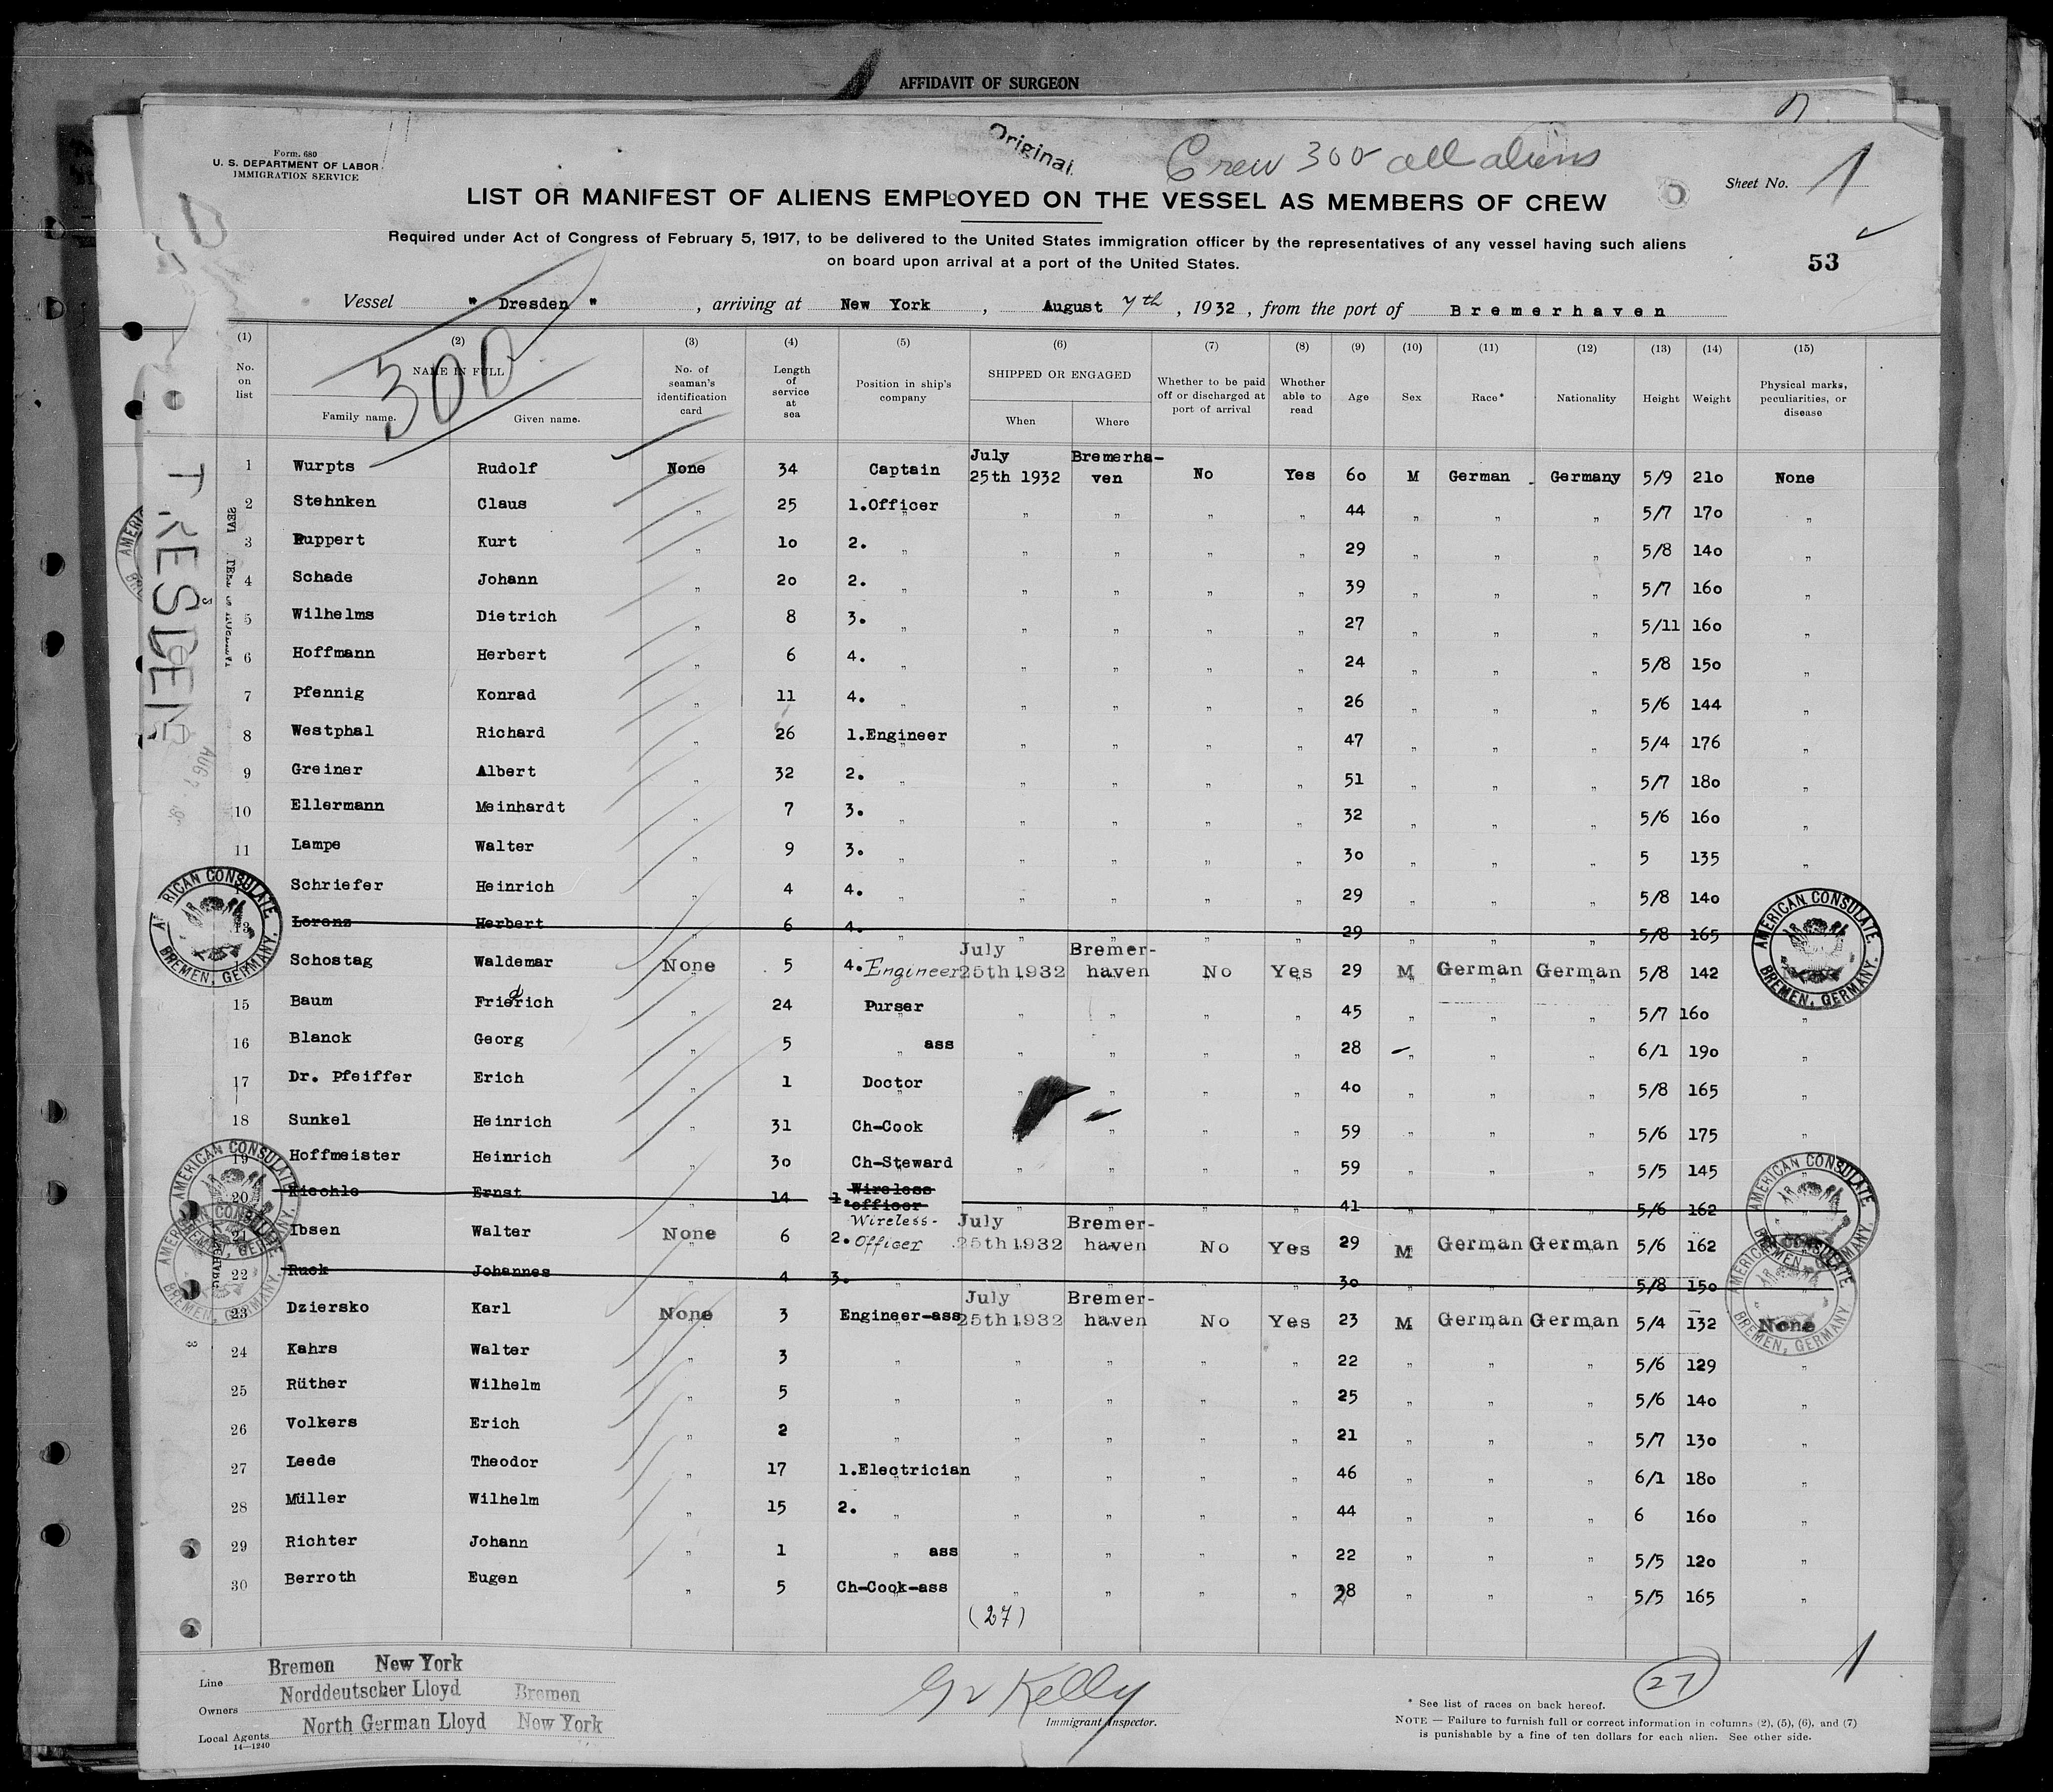 AFFIDAVIT OF SURGEON
Original
Crew 300 all aliens
Form. 680
U. S. DEPARTMENT OF LABOR
IMMIGRATION SERVICE
Sheet No. 1
LIST OR MANIFEST OF ALIENS EMPLOYED ON THE VESSEL AS MEMBERS OF CREW
Required under Act of Congress of February 5, 1917, to be delivered to the United States immigration officer by the representatives of any vessel having such aliens
on board upon arrival at a port of the United States.
53
Vessel " Dresden " , arriving at New York , August 7th , 1932 , from the port of Bremerhaven
300
(1) (2) (3) (4) (5) (6) (7) (8) (9) (10) (11) (12) (13) (14) (15)
No. on list NAME IN FULL Family name. Given name. No. of seaman's identification card Length of service at sea Position in ship's company SHIPPED OR ENGAGED When Where Whether to be paid off or discharged at port of arrival Whether able to read Age Sex Race* Nationality Height Weight Physical marks, peculiarities, or disease
1 Wurpts Rudolf None 34 Captain July 25th 1932 Bremerha-ven No Yes 60 M German Germany 5/9 210 None
2 Stehnken Claus " 25 1.Officer " " " " 44 " " " 5/7 170 "
3 Ruppert Kurt " 10 2. " " " " " 29 " " " 5/8 140 "
4 Schade Johann " 20 2. " " " " " 39 " " " 5/7 160 "
5 Wilhelms Dietrich " 8 3. " " " " " 27 " " " 5/11 160 "
6 Hoffmann Herbert " 6 4. " " " " " 24 " " " 5/8 150 "
7 Pfennig Konrad " 11 4. " " " " " 26 " " " 5/6 144 "
8 Westphal Richard " 26 1.Engineer " " " " 47 " " " 5/4 176 "
9 Greiner Albert " 32 2. " " " " " 51 " " " 5/7 180 "
10 Ellermann Meinhardt " 7 3. " " " " " 32 " " " 5/6 160 "
11 Lampe Walter " 9 3. " " " " " 30 " " " 5 135 "
Schriefer Heinrich " 4 4. " " " " " 29 " " " 5/8 140 "
13 Lorenz Herbert " 6 4. " " " " " 29 " " " 5/8 165
Schostag Waldemar None 5 4. Engineer July 25th 1932 Bremer-haven No Yes 29 M German German 5/8 142
15 Baum Friedrich " 24 Purser " " " " 45 " " " 5/7 160 "
16 Blanck Georg " 5 " ass " " " " 28 " " " 6/1 190 "
17 Dr. Pfeiffer Erich " 1 Doctor " " " " 40 " " " 5/8 165 "
18 Sunkel Heinrich " 31 Ch-Cook " " " 59 " " " 5/6 175 "
19 Hoffmeister Heinrich " 30 Ch-Steward " " " " 59 " " " 5/5 145 "
20 Riechle Ernst " 14 1. Wireless officer " " " " 41 " " " 5/6 162
21 Ibsen Walter None 6 2. Wireless-Officer July 25th 1932 Bremer-haven No Yes 29 M German German 5/6 162
22 Ruck Johannes " 4 3. " " " " " 30 " " " 5/8 150
23 Dziersko Karl None 3 Engineer-ass July 25th 1932 Bremer-haven No Yes 23 M German German 5/4 132 None
24 Kahrs Walter " 3 " " " " " 22 " " " 5/6 129 "
25 Rüther Wilhelm " 5 " " " " " 25 " " " 5/6 140 "
26 Volkers Erich " 2 " " " " " 21 " " " 5/7 130 "
27 Leede Theodor " 17 1.Electrician " " " " 46 " " " 6/1 180 "
28 Müller Wilhelm " 15 2. " " " " " 44 " " " 6 160 "
29 Richter Johann " 1 " ass " " " " 22 " " " 5/5 120 "
30 Berroth Eugen " 5 Ch-Cook-ass " " " " 28 " " " 5/5 165 "
(27)
DRESDEN
AMERICAN CONSULATE
BREMEN, GERMANY.
AMERICAN CONSULATE
BREMEN, GERMANY.
AMERICAN CONSULATE
BREMEN, GERMANY.
AMERICAN CONSULATE
BREMEN, GERMANY.
Line Bremen New York
Owners Norddeutscher Lloyd Bremen
Local Agents North German Lloyd New York
14—1240
Kelly
Immigrant Inspector.
27
1
* See list of races on back hereof.
NOTE — Failure to furnish full or correct information in columns (2), (5), (6), and (7)
is punishable by a fine of ten dollars for each alien. See other side.